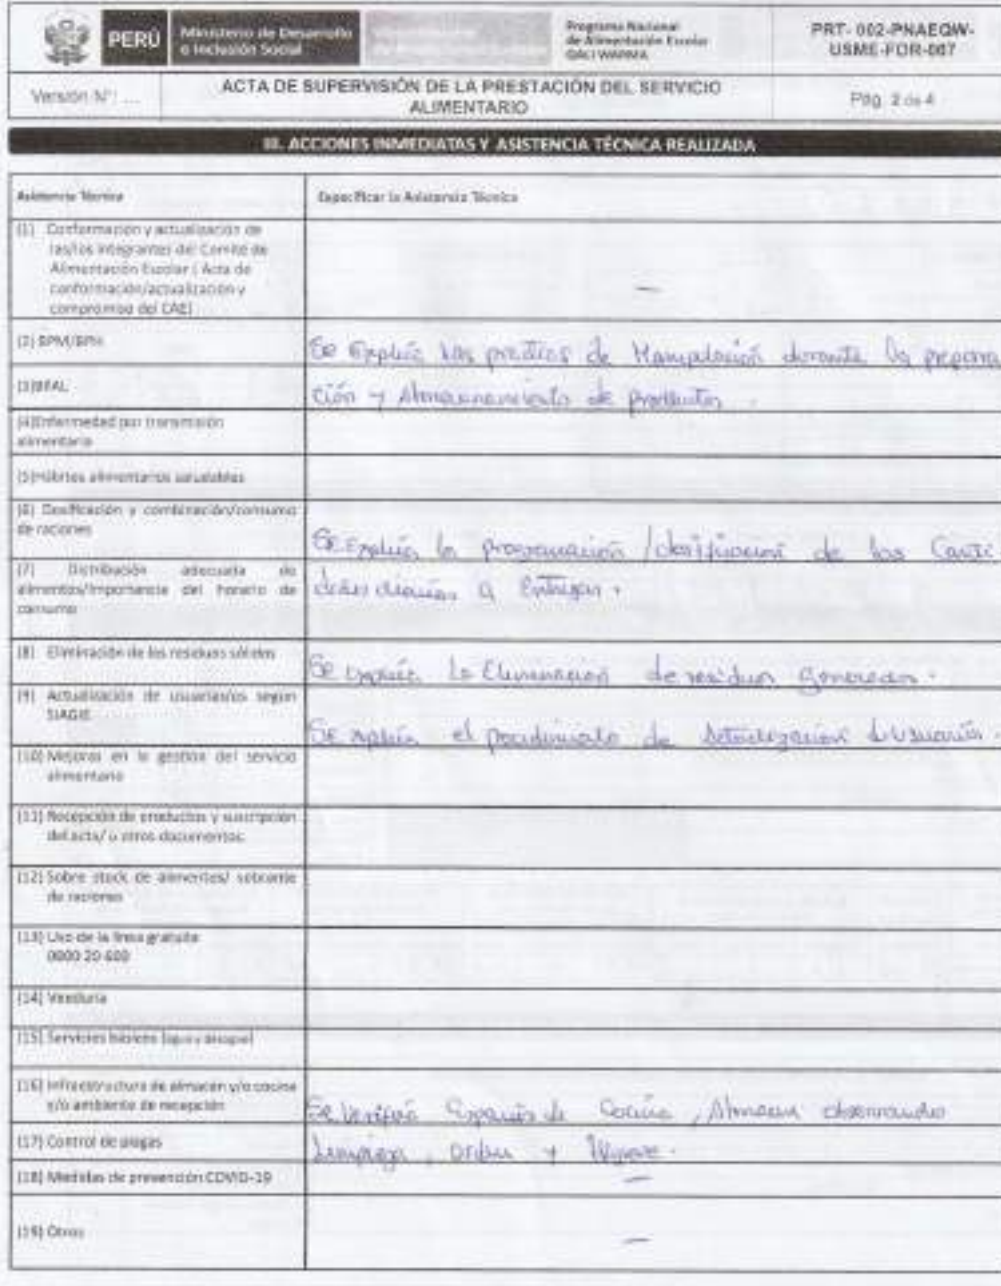 PERÚ
Ministerio de Desarrollo
e Inclusión Social
Programa Nacional
de Alimentación Escolar
QALI WARMA
PRT- 002-PNAEQW-
USME-FOR-007
Versión N°: ....
ACTA DE SUPERVISIÓN DE LA PRESTACIÓN DEL SERVICIO
ALIMENTARIO
Pág. 2 de 4
III. ACCIONES INMEDIATAS Y ASISTENCIA TÉCNICA REALIZADA
Asistencia Técnica
Especificar la Asistencia Técnica
(1) Conformación y actualización de
las/los integrantes del Comité de
Alimentación Escolar ( Acta de
conformación/actualización y
compromiso del CAE)
—
(2) BPM/BPH
Se Explica las practicas de Manipulación durante la prepara
(3)BPAL
ción y Almacenamiento de productos .
(4)Enfermedad por transmisión
alimentaria
(5)Hábitos alimentarios saludables
(6) Dosificación y combinación/consumo
de raciones
Se Explica la programación /dosificación de las Canti
(7) Distribución adecuada de
alimentos/importancia del horario de
consumo
dades diarias a Entregar.
(8) Eliminación de los residuos sólidos
Se explica la Eliminación de residuos Generados.
(9) Actualización de usuarias/os según
SIAGIE
Se explica el procedimiento de Actualización de Usuarios.
(10) Mejoras en la gestión del servicio
alimentario
(11) Recepción de productos y suscripción
del acta/ u otros documentos.
(12) Sobre stock de alimentos/ sobrante
de raciones
(13) Uso de la línea gratuita
0800 20 600
(14) Veeduría
(15) Servicios básicos (agua y desagüe)
(16) Infraestructura de almacén y/o cocina
y/o ambiente de recepción
Se Verifica Espacios de Cocina, Almacen observando
(17) Control de plagas
Limpieza, Orden y Higiene.
(18) Medidas de prevención COVID-19
—
(19) Otros
—